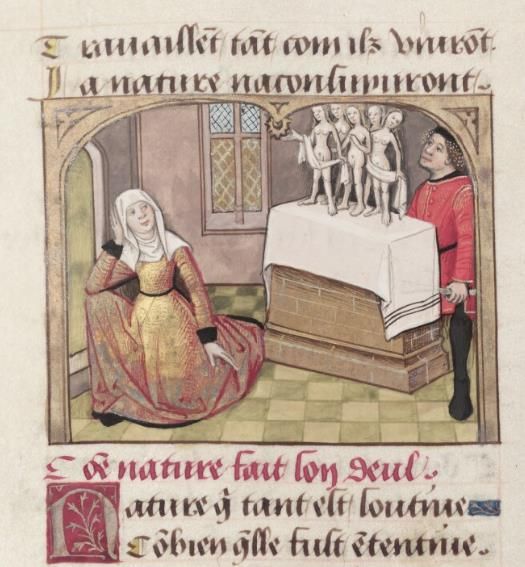 Trauaillēt tāt com ilz viurōt.
Ja nature naconsuiuront.
Cōe nature fait son deul.
Nature q̄ tant est soutiue
Cōbien q̄lle fust ētentiue.